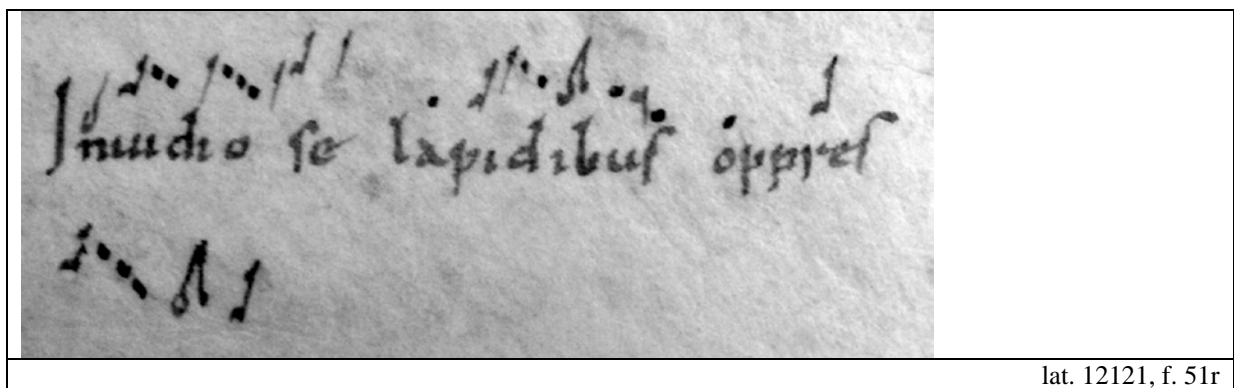 Inuidio se lapidibus oppres
lat. 12121, f. 51r